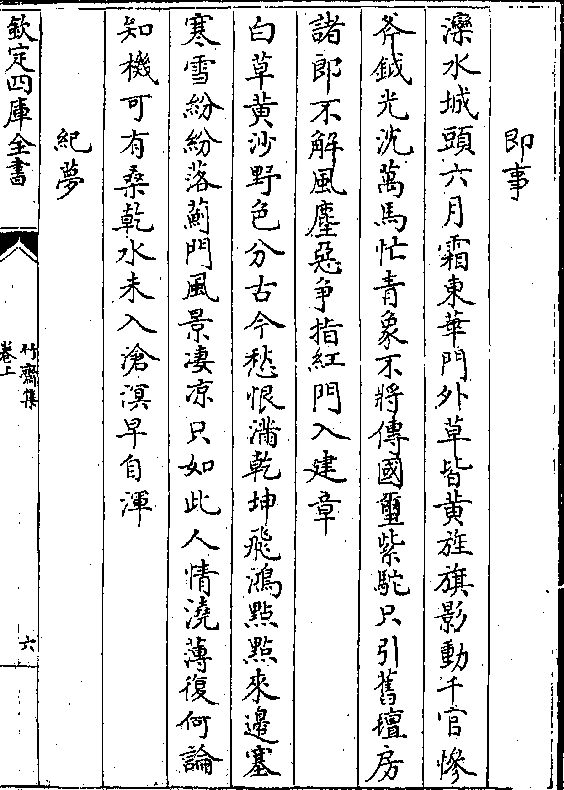 即事
灤水城頭六月霜東華門外草皆黄旌旗影動千官慘
斧鉞光沈萬馬忙青象不將傳國璽紫駝只引舊壇房
諸郎不解風塵惡爭指紅門入建章
白草黄沙野色分古今愁恨滿乾坤飛鴻點點來邉塞
寒雪紛紛落薊門風景凄凉只如此人情澆薄復何論
知機可有桑乾水未入滄溟早自渾
紀夢
欽定四庫全書
竹齋集
卷上
六